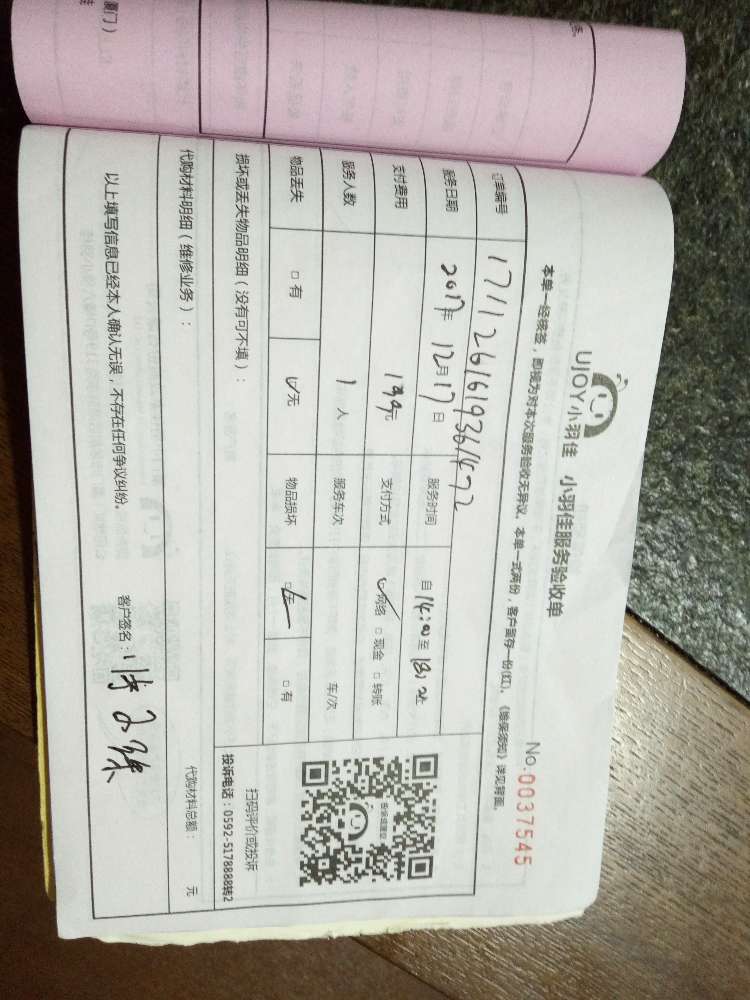 UJOY小羽佳 小羽佳服务验收单
No.0037545
本单一经核签，即视为对本次服务验收无异议。本单一式两份，客户留存一份(红)。《维保须知》详见背面。
订单编号 171126161936114972
服务日期 2017年 12月17日 服务时间 自 14:00 至
支付费用 199元 支付方式 网络 □现金 □转账
服务人数 1 人 服务车次 车/次
物品丢失 □有 无 物品损坏 无 □有
损坏或丢失物品明细（没有可不填）：
扫码评价或投诉
投诉电话：0592-5178888转2
代购材料明细（维修业务）： 代购材料总额： 元
以上填写信息已经本人确认无误，不存在任何争议纠纷。 客户签名：